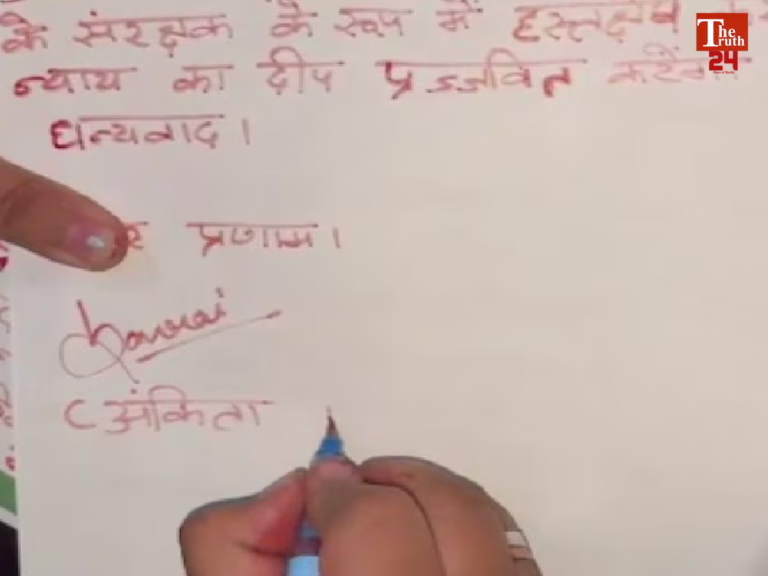 के संरक्षक के रूप में हस्तक्षेप
न्याय का दीप प्रज्जवित करेंगे
धन्यवाद।
प्रणाम।
(अंकिता
The Truth 24